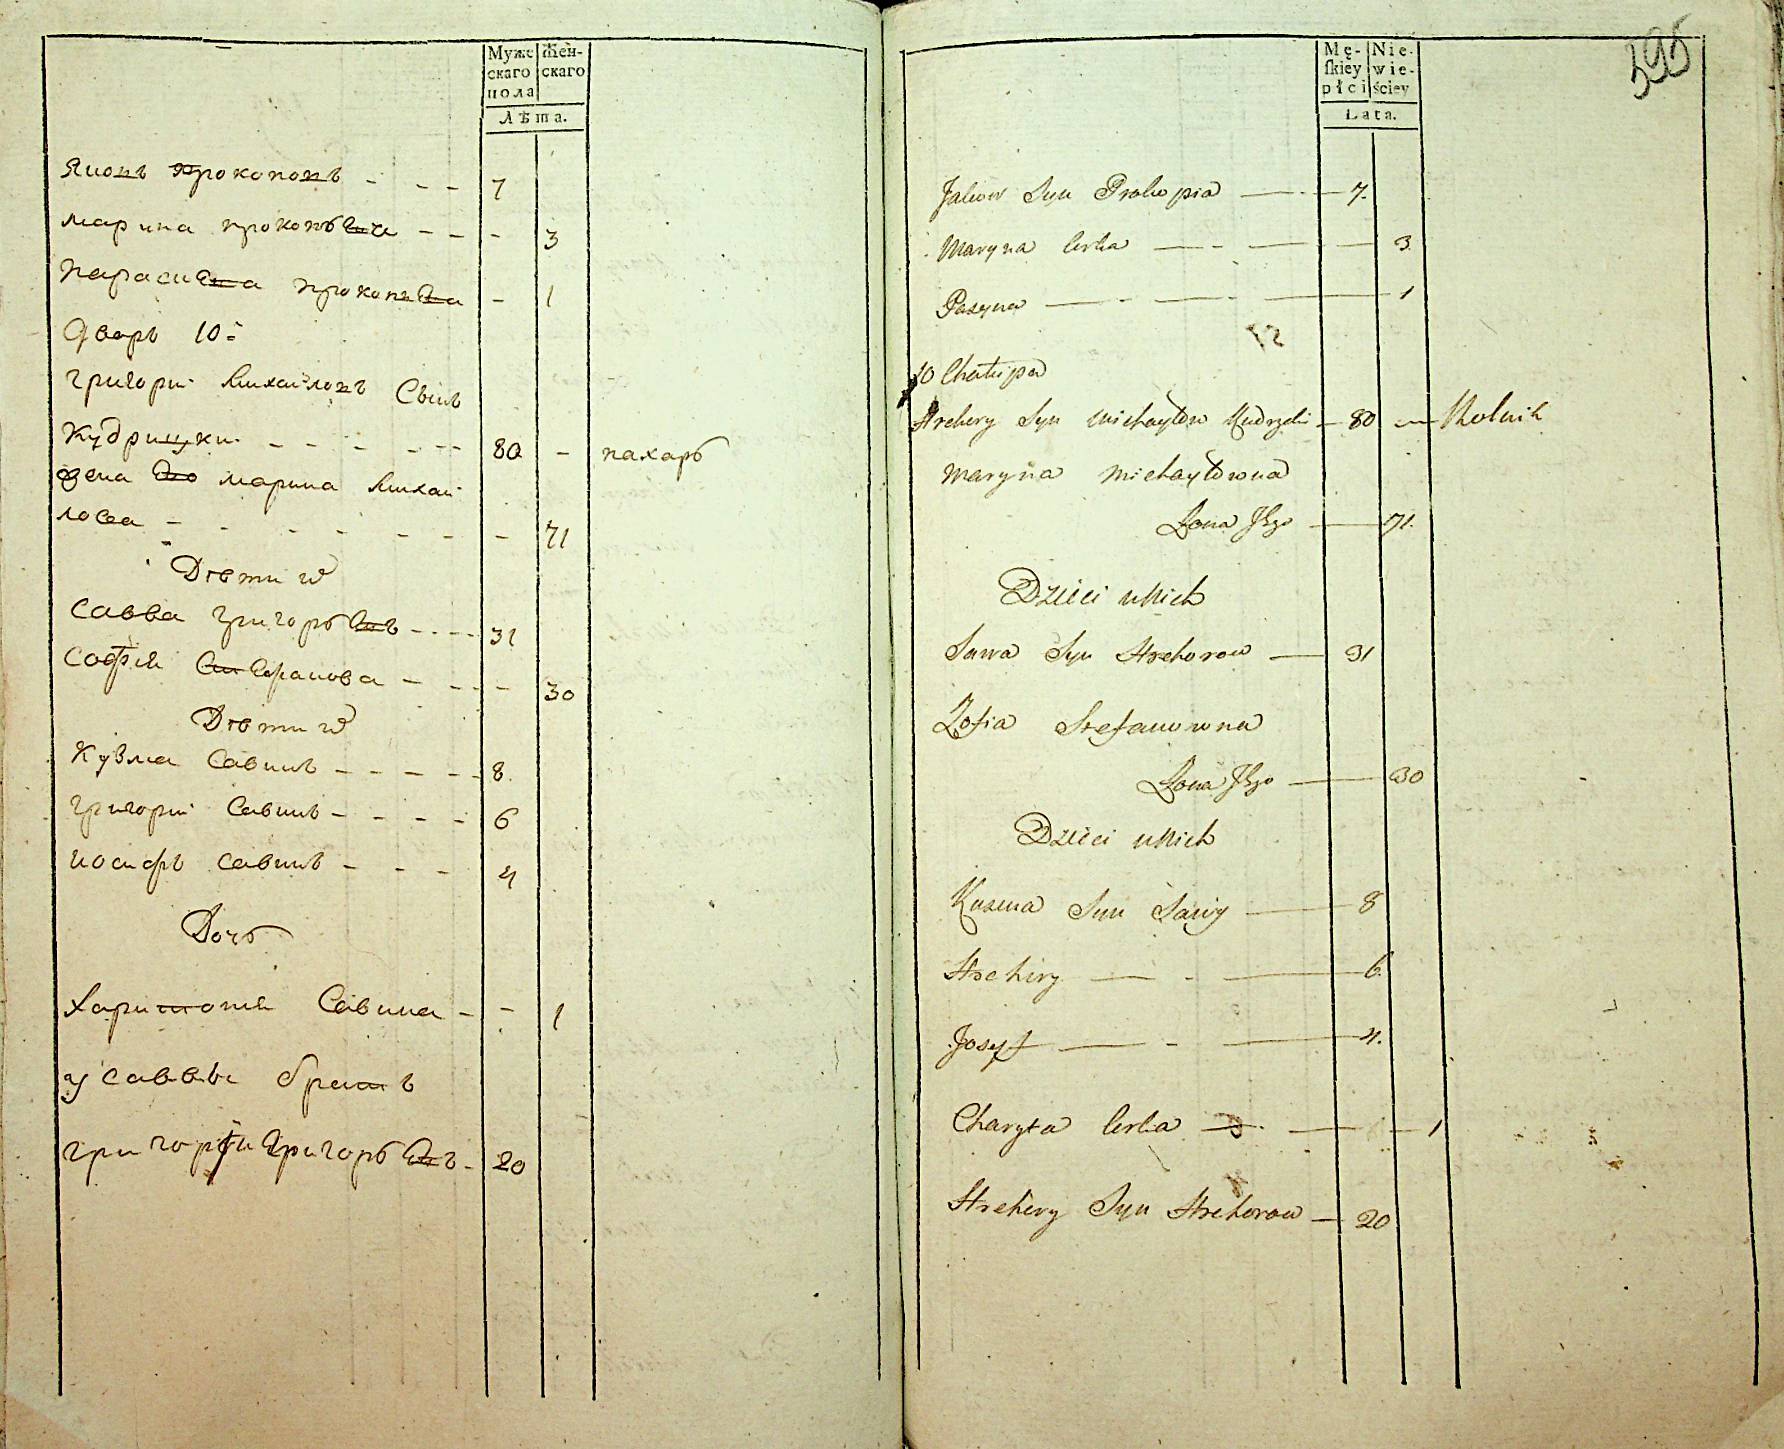 Муже Жен-
скаго скаго
пола
Лѣта.
Яковъ Прокоповъ - - - 7
марина прокопьева - - - 3
Параскева прокопьева - 1
Дворъ 10:
григорий Михайловъ Сынъ
Кудрицкий - - - - - - 80 - пахарь
жена Его марина Михай
лова - - - - - - - 71
Дѣти их
Савва григорьевъ - - - - 31
София Стефанова - - - - 30
Дѣти их
Кузма Савинъ - - - - - 8
григорий Савинъ - - - - 6
иосифъ савинъ - - - 4
Дочь
Харитония Савина - - 1
у саввы братъ
григорий григорьевъ - 20
395
Mę- Nie-
skiey wie-
płci ściey
Lata.
Jakow Syn Prokopia 7.
Maryna Corka 3
1
10 Chałupa
Hrehery Syn Michayłow Kudrycki 80 Rolnik
Maryna Michayłowna
Żona Jego 71.
Dzieci u Nich
Sawa Syn Hrehorow 31
Zofia Stefanowna
Żona Jego 30
Dzieci u Nich
Kuzma Syn Sawy 8
Hrehery 6.
Josyf 4.
Charyta Corka 1
Hrehery Syn Hrehorow 20